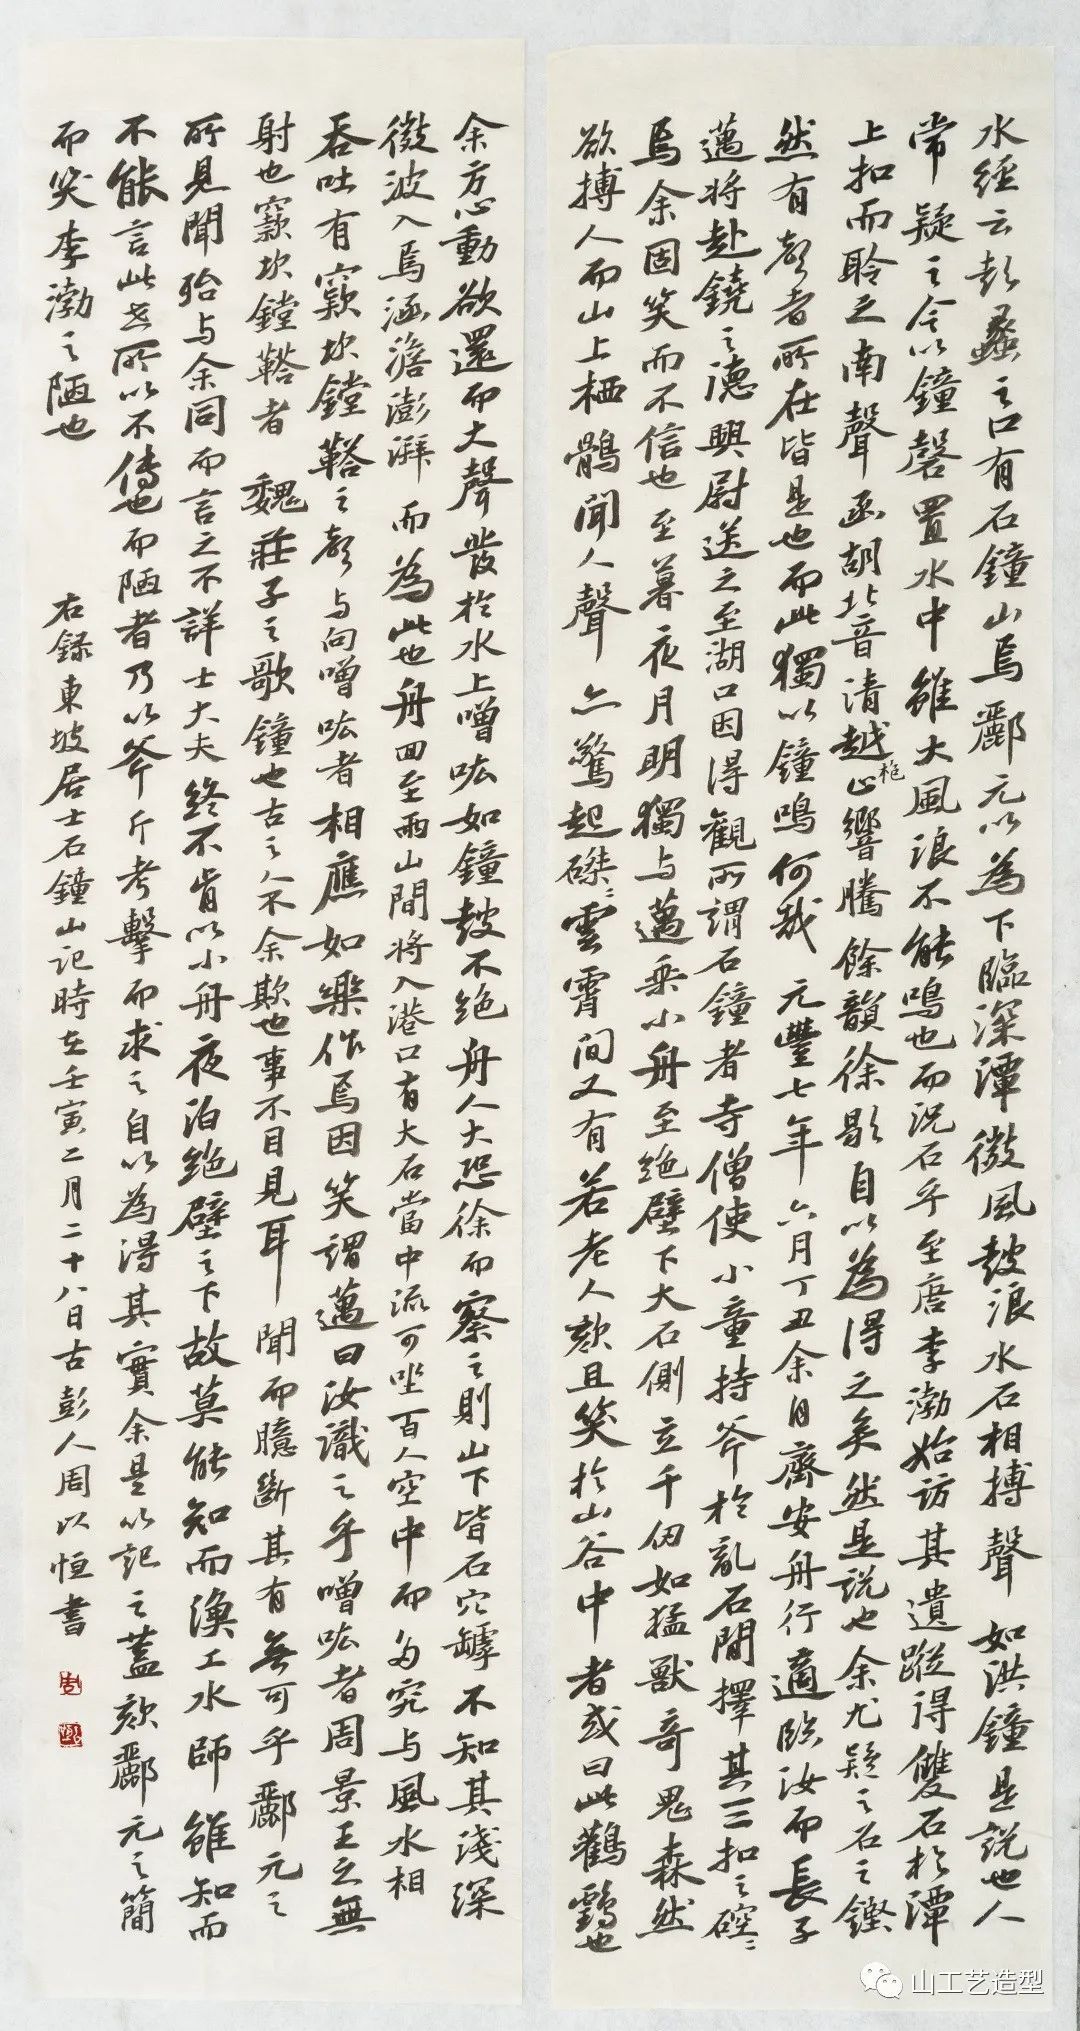 水經云彭蠡之口有石鐘山焉酈元以為下臨深潭微風鼓浪水石相搏聲如洪鐘是說也人
常疑之今以鐘磬置水中雖大風浪不能鳴也而況石乎至唐李渤始訪其遺蹤得雙石於潭
上扣而聆之南聲函胡北音清越枹止響騰餘韻徐歇自以為得之矣然是説也余尤疑之石之鏗
然有聲者所在皆是也而此獨以鐘鳴何哉元豐七年六月丁丑余自齊安舟行適臨汝而長子
邁將赴饒之德興尉送之至湖口因得觀所謂石鐘者寺僧使小童持斧於亂石間擇其一二扣之硿〻
焉余固笑而不信也至暮夜月明獨与邁乘小舟至絶壁下大石側立千仞如猛獸奇鬼森然
欲搏人而山上栖鶻聞人聲亦驚起磔〻雲霄间又有若老人欬且笑於山谷中者或曰此鸛鶴也
余方心動欲還而大聲發於水上噌吰如鐘鼓不絶舟人大恐徐而察之則山下皆石穴罅不知其淺深
微波入焉涵澹澎湃而為此也舟回至兩山間將入港口有大石當中流可坐百人空中而多竅与風水相
吞吐有窾坎鏜鞳之聲与向噌吰者相應如樂作焉因笑謂邁曰汝識之乎噌吰者周景王之無
射也窾坎鏜鞳者魏莊子之歌鐘也古之人不余欺也事不目見耳聞而臆斷其有無可乎酈元之
所見聞殆与余同而言之不詳士大夫終不肯以小舟夜泊絶壁之下故莫能知而漁工水師雖知而
不能言此世所以不傳也而陋者乃以斧斤考擊而求之自以為得其實余是以記之蓋歎酈元之簡
而笑李渤之陋也
右録東坡居士石鐘山记時在壬寅二月二十八日古彭人周以恒書
山工艺造型